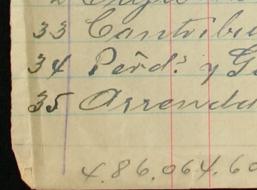 33 Contribu
34 Pérd.s y G
35 Arrenda
4.86.064.60